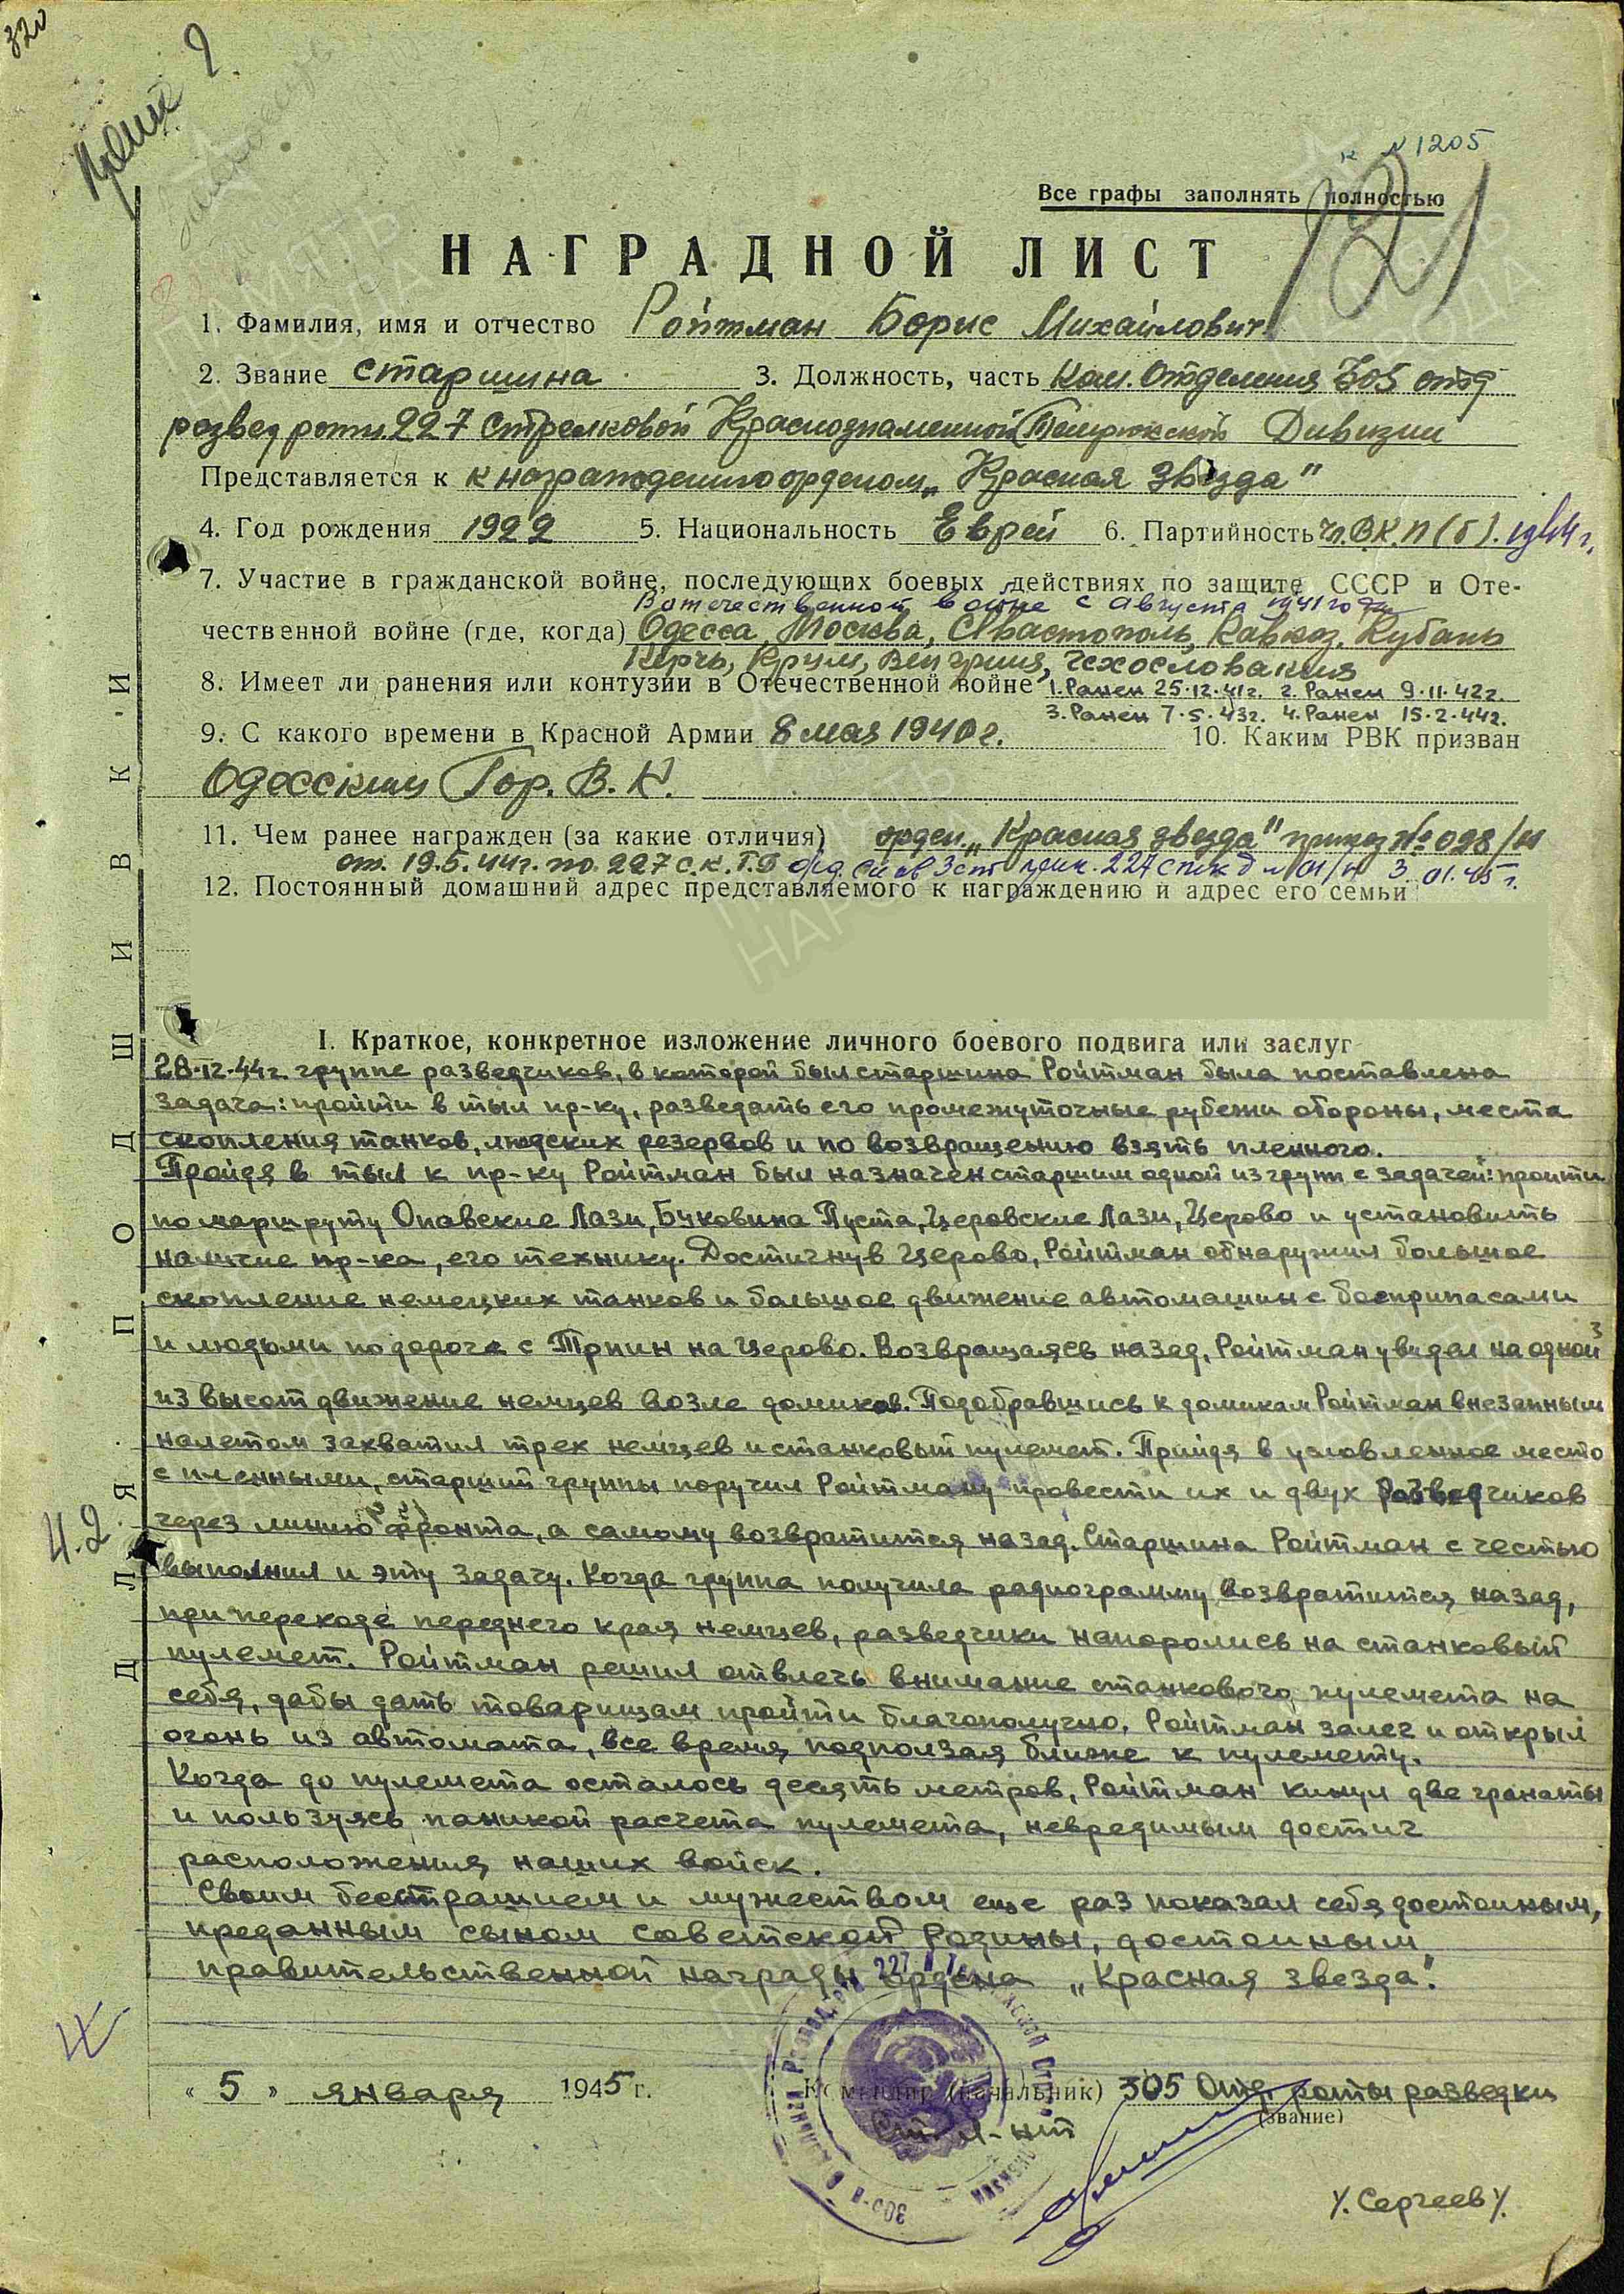 320
к № 1205
Все графы заполнять полностью
121
НАГРАДНОЙ ЛИСТ
1. Фамилия, имя и отчество Ройтман Борис Михайлович
2. Звание старшина 3. Должность, часть Ком. Отделения 305 отд
развед роты 227 Стрелковой Краснознаменной Темрюкской Дивизии
Представляется к к награждению орденом „Красная Звезда"
4. Год рождения 1922 5. Национальность Еврей 6. Партийность Чл. ВКП(б). 1944 г.
7. Участие в гражданской войне, последующих боевых действиях по защите СССР и Оте-
В отечественной войне с августа 1941 года
чественной войне (где, когда) Одесса, Москва, Севастополь, Кавказ, Кубань
Керчь, Крым, Венгрия, Чехословакия
8. Имеет ли ранения или контузии в Отечественной войне 1. Ранен 25.12.41г. 2. Ранен 9.11.42г.
3. Ранен 7.5.43г. 4. Ранен 15.2.44г.
9. С какого времени в Красной Армии 8 мая 1940 г. 10. Каким РВК призван
Одесским Гор. В. К.
11. Чем ранее награжден (за какие отличия) орден „Красная звезда" приказ № 028/н
от. 19.5.44г. по. 227 с.к.Т.Д орд. Слав 3 ст 01/н 3.01.45 г.
12. Постоянный домашний адрес представляемого к награждению и адрес его семьи
I. Краткое, конкретное изложение личного боевого подвига или заслуг
28.12.44г. группе разведчиков, в которой был старшина Ройтман была поставлена
задача: пройти в тыл пр-ку, разведать его промежуточные рубежи обороны, места
скопления танков, людских резервов и по возвращению взять пленного.
Пройдя в тыл к пр-ку Ройтман был назначен старшим одной из групп с задачей: пройти
по маршруту Опавские Лази, Буковина Пуста, Церовские Лази, Церово и установить
наличие пр-ка, его технику. Достигнув Церово, Ройтман обнаружил большое
скопление немецких танков и большое движение автомашин с боеприпасами
и людьми по дороге с Трпин на Церово. Возвращаясь назад, Ройтман увидел на одной
из высот движение немцев возле домиков. Подобравшись к домикам Ройтман внезапным
налетом захватил трех немцев и станковый пулемет. Придя в условленное место
с пленными, старший группы поручил Ройтману провести их и двух разведчиков
через линию фронта, а самому возвратится назад. Старшина Ройтман с честью
выполнил и эту задачу. Когда группа получила радиограмму возвратится назад,
при переходе переднего края немцев, разведчики напоролись на станковый
пулемет. Ройтман решил отвлечь внимание станкового пулемета на
себя, дабы дать товарищам пройти благополучно. Ройтман залег и открыл
огонь из автомата, все время подползая ближе к пулемету.
Когда до пулемета осталось десять метров, Ройтман кинул две гранаты
и пользуясь паникой расчета пулемета, невредимым достиг
расположения наших войск.
Своим бесстрашием и мужеством еще раз показал себя достойным,
преданным сыном Советской Родины, достойным
правительственной награды ордена „Красная звезда".
« 5 » января 1945 г. Командир (начальник) 305 Отд. роты разведки
(звание)
Ст. л-нт
/Сергеев/
ДЛЯ ПОДШИВКИ
4.2
ПАМЯТЬ НАРОДА